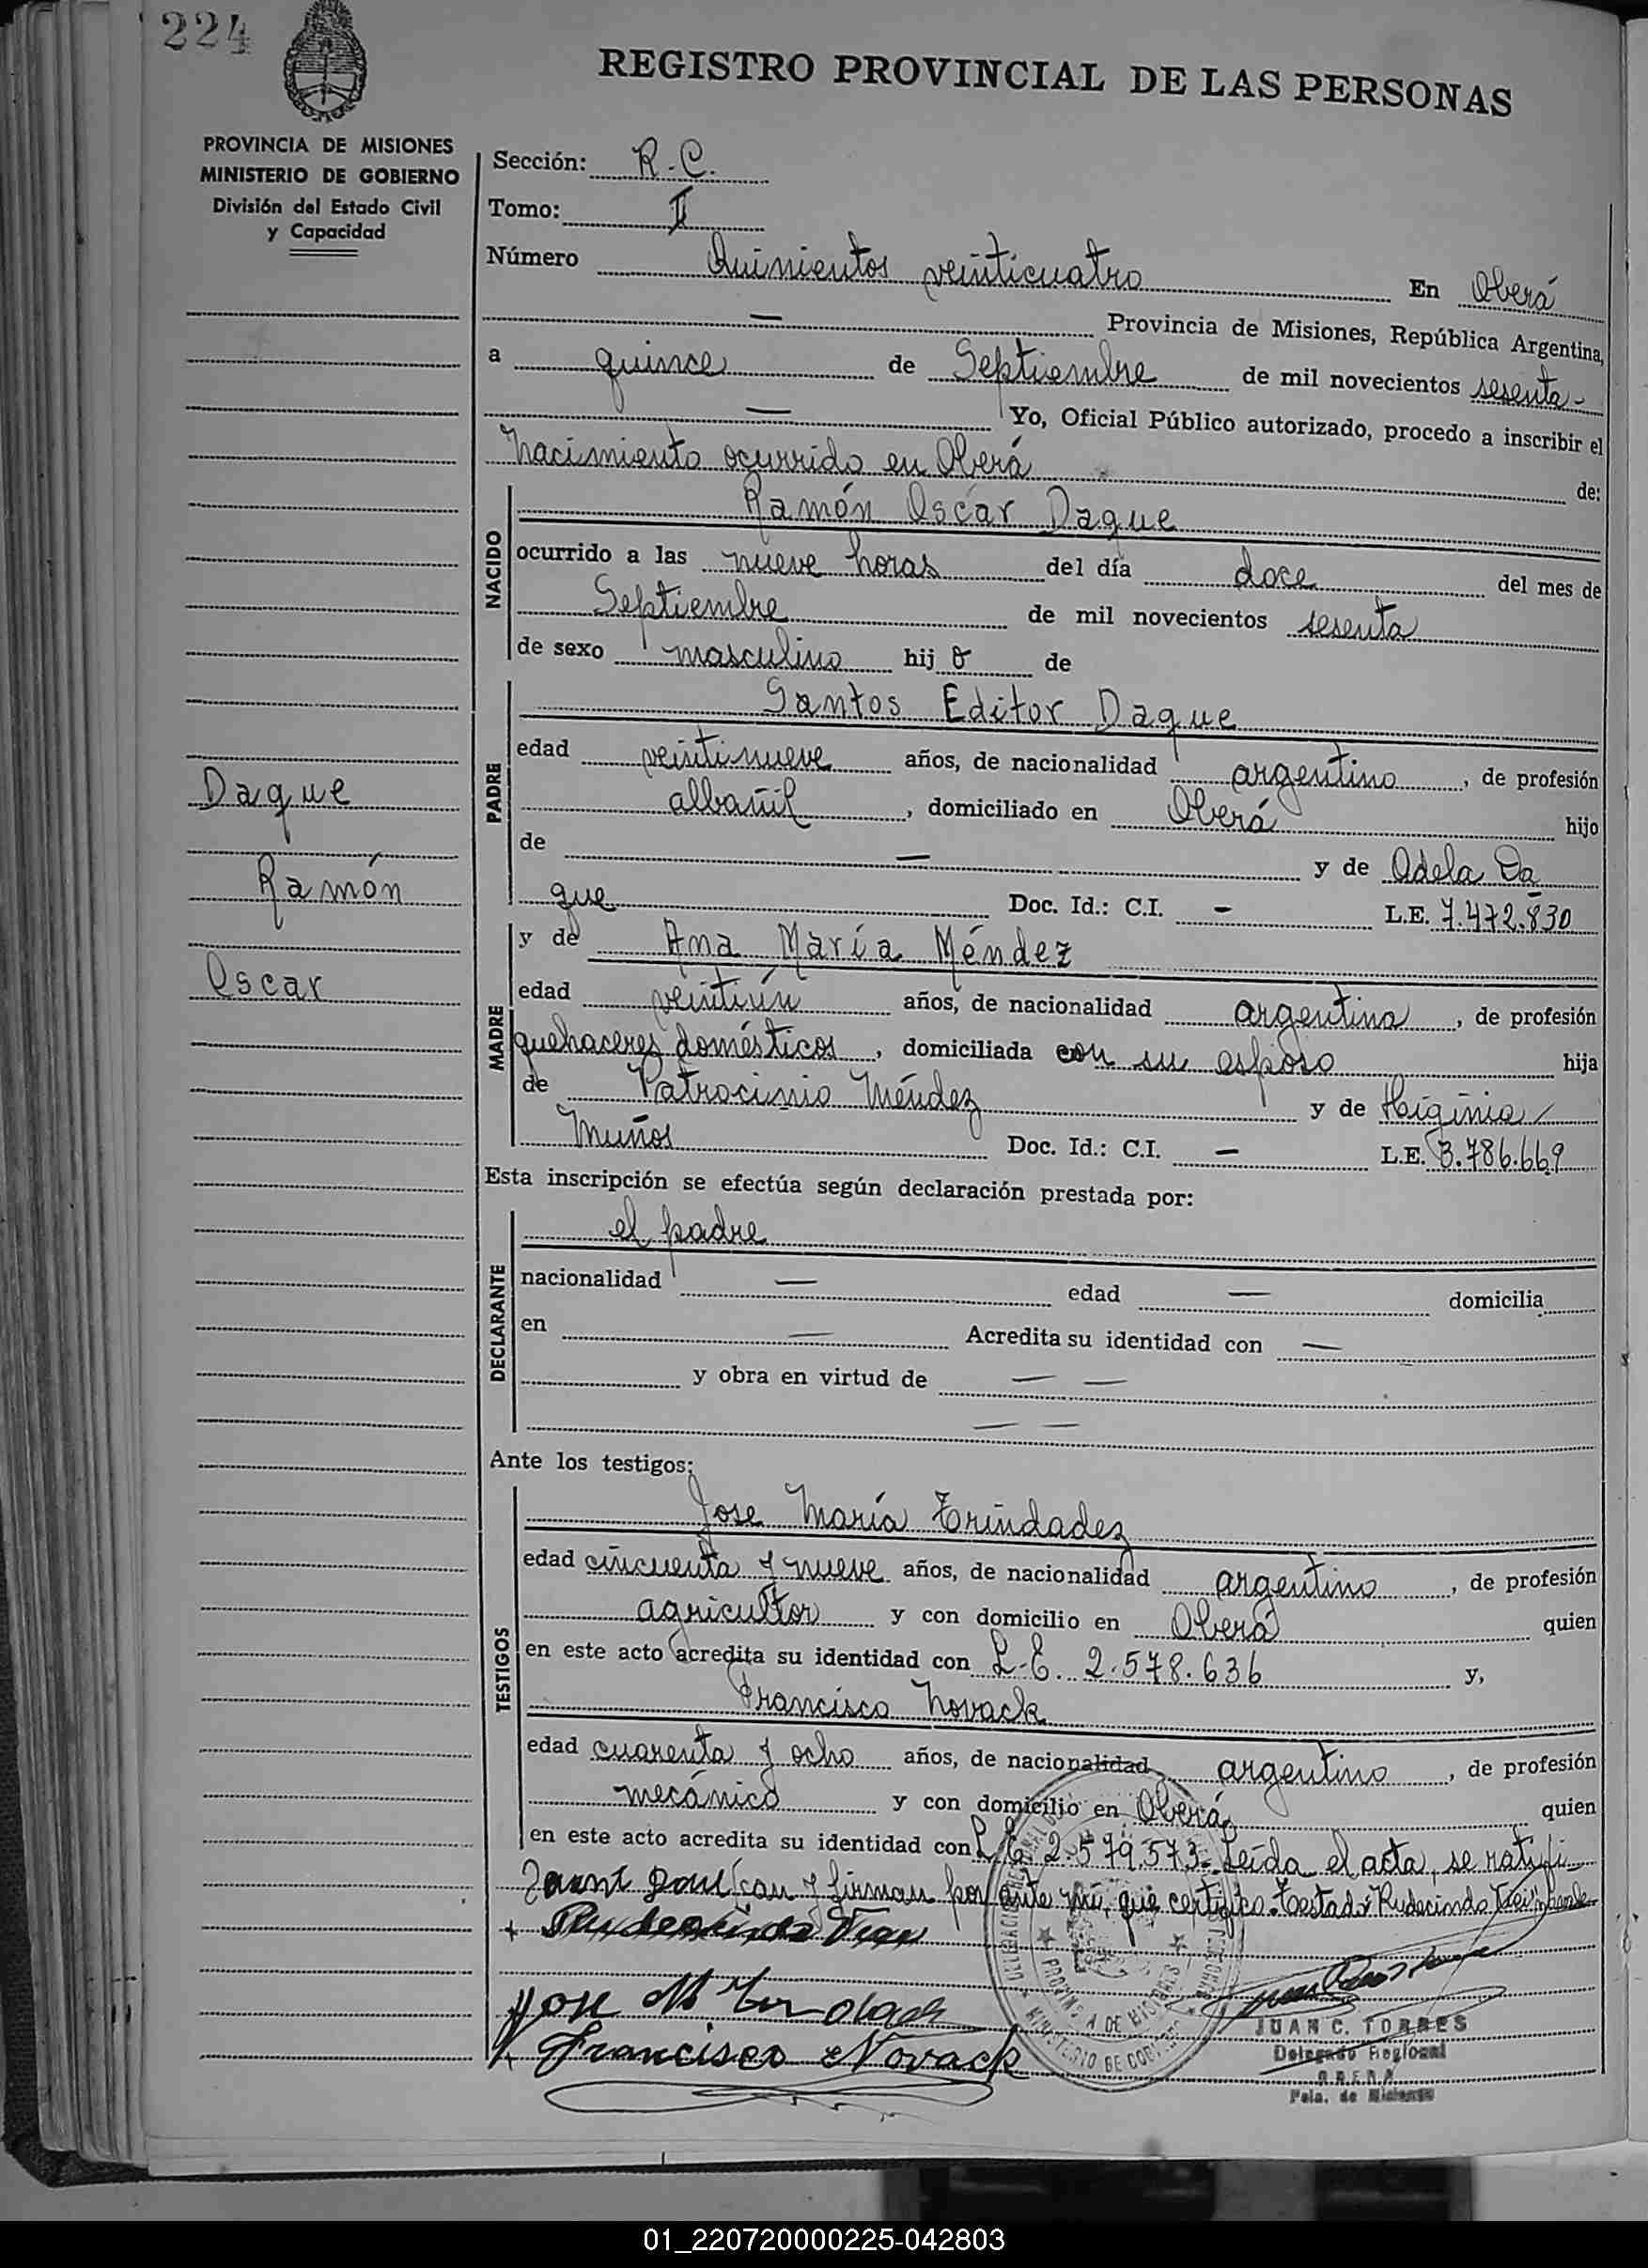 224
REGISTRO PROVINCIAL DE LAS PERSONAS
PROVINCIA DE MISIONES
MINISTERIO DE GOBIERNO
División del Estado Civil
y Capacidad
Sección: R.C.
Tomo: II
Número Quinientos veinticuatro En Oberá
— Provincia de Misiones, República Argentina,
a quince de Septiembre de mil novecientos sesenta -
— Yo, Oficial Público autorizado, procedo a inscribir el
nacimiento ocurrido en Oberá de:
NACIDO
Ramón Oscar Daque
ocurrido a las nueve horas del día doce del mes de
Septiembre de mil novecientos sesenta
de sexo masculino hij o de
PADRE
Santos Editor Daque
edad veintinueve años, de nacionalidad argentino, de profesión
albañil, domiciliado en Oberá hijo
de — y de Adela Da
que Doc. Id.: C.I. — L.E. 7.472.830
Daque
Ramón
Oscar
MADRE
y de Ana María Méndez
edad veintiún años, de nacionalidad argentina, de profesión
quehaceres domésticos, domiciliada con su esposo hija
de Patrocinio Méndez y de Higinia
Muños Doc. Id.: C.I. — L.E. 3.786.669
Esta inscripción se efectúa según declaración prestada por:
DECLARANTE
el padre
nacionalidad — edad — domicilia
en — Acredita su identidad con —
y obra en virtud de — —
— —
Ante los testigos:
TESTIGOS
Jose María Trindadez
edad cincuenta y nueve años, de nacionalidad argentino, de profesión
agricultor y con domicilio en Oberá quien
en este acto acredita su identidad con L.E. 2.578.636 y,
Francisco Novack
edad cuarenta y ocho años, de nacionalidad argentino, de profesión
mecánico y con domicilio en Oberá quien
en este acto acredita su identidad con L.E. 2.579.573. Leída el acta, se ratifi-
can y firman por ante mí, que certifico. Testado: Rudecindo
Jose M
Francisco Novack
PROVINCIA DE MISIONES
JUAN C. TORRES
Delegado Regional
OBERA
Pcia. de Misiones
01_220720000225-042803